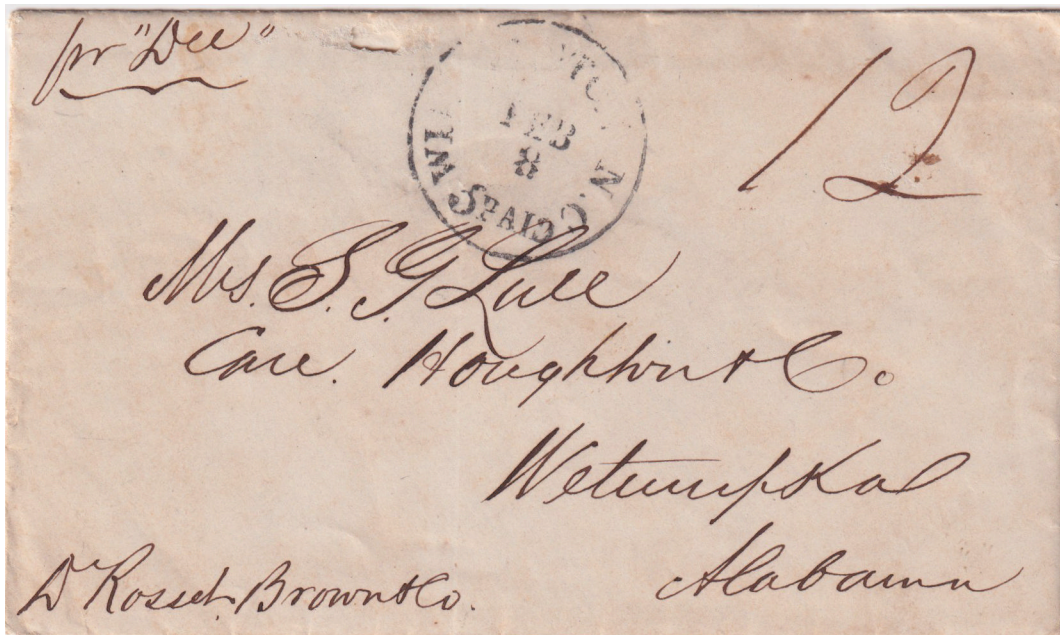 pr "Dee"
WI TO N.C.
FEB
8
PAID
12
Mrs. S. G. Lull
Care. Houghton & Co.
Wetumpka
Alabama
D Rosset Brown & Co.